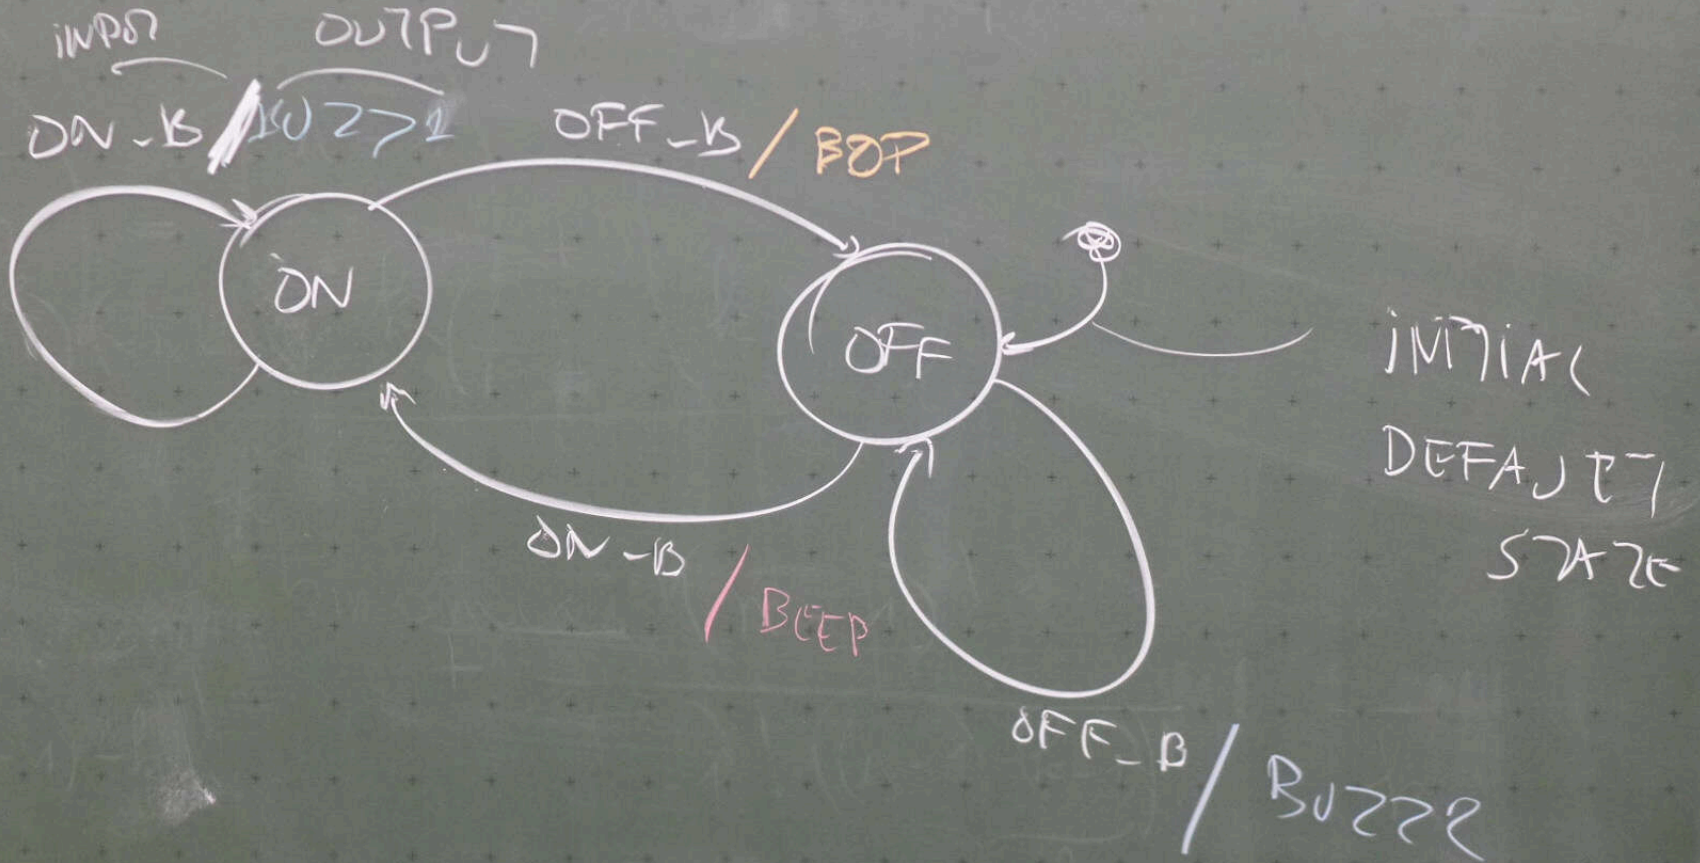 INPUT OUTPUT
ON_B/BUZZ1 OFF_B/BOP
ON
OFF
INITIAL
DEFAULT
STATE
ON-B/BEEP
OFF_B/BUZZ2